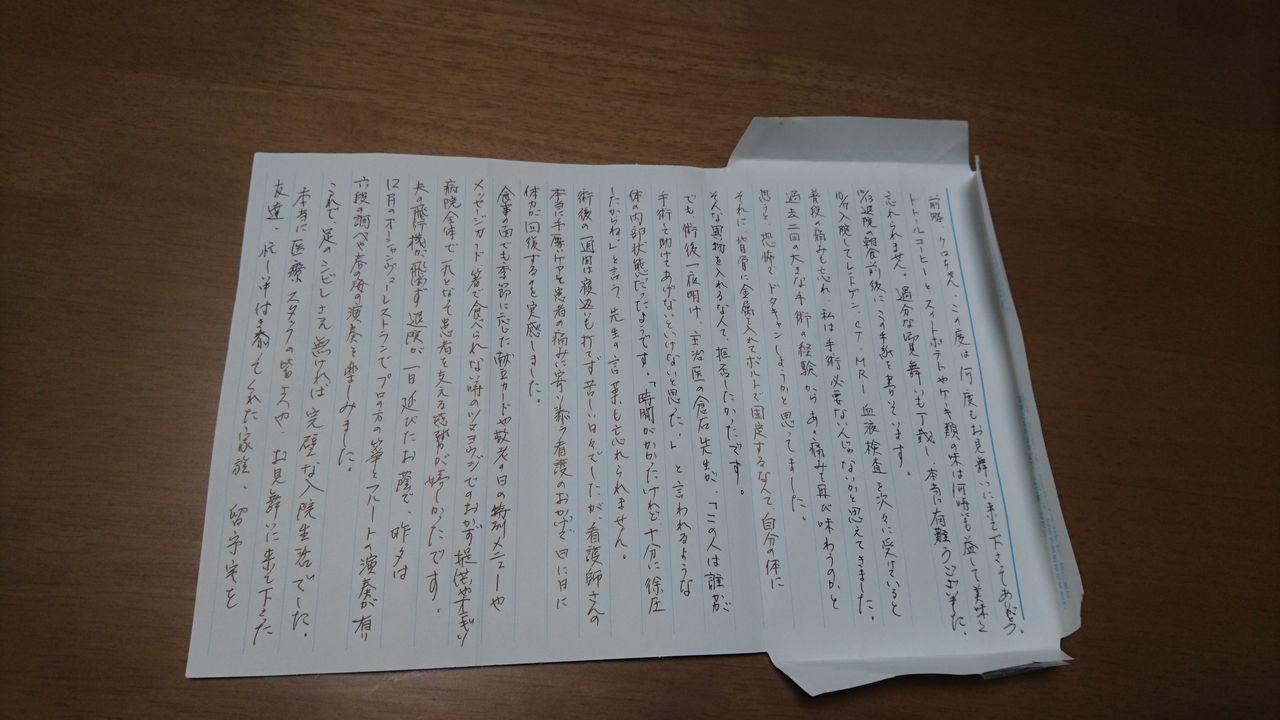 前略 クロちゃん、この度は何度もお見舞いに来て下さってありがとう。
ドトールコーヒーとスイトポテトやケーキ類の味は何時にも益して美味しく
忘れられません。過分なお見舞いも丁戴し本当に有難うございました。
10/13退院の朝食前後にこの手紙を書いています。
入院してレントゲン、CT、MRI 血液検査を次々に受けていると
普段の痛みも忘れ、私は手術必要ないんじゃないかと思えてきました。
過去二回の大きな手術の経験から、あの痛みを再び味わうのかと
思うと恐怖で、ドタキャンしようかと思ってました。
それに、背骨に金属を入れてボルトで固定するなんて、自分の体に
そんな異物を入れるなんて、拒否したかったです。
でも術後一夜明け、主治医の倉石先生が、「この人は誰かが
手術して助けてあげないといけないと思った。」と言われるような
体の内部状態だったようです。「時間がかかったけれど、十分に除圧
したからね。」と言う、先生の言葉も忘れられません。
術後の一週間は寝返りも打てず苦しい日々でしたが看護師さんの
本当に手厚いケアと患者の痛みに寄り添う看護のおかげで日に日に
体力が回復するのを実感しました。
食事の面でも季節に応じた献立カードや敬老の日の特別メニューや
メッセージカード 箸で食べられない時のツマヨウジでのおかず提供やオニギリ
病院全体で一丸となって患者を支える感勢が嬉しかったです。
夫の飛行機が飛ばず退院が一日延びたお蔭で、昨夕は
12月のオーシャンヴューレストランでプロの方の箏とフルートの演奏が有り
六段の調べや春の海の演奏を楽しみました。
これで足のシビレさえ無ければ完璧な入院生活でした。
本当に医療スタッフの皆さんや、お見舞いに来て下さった
友達、忙し中は支えてくれた家族、留守宅を